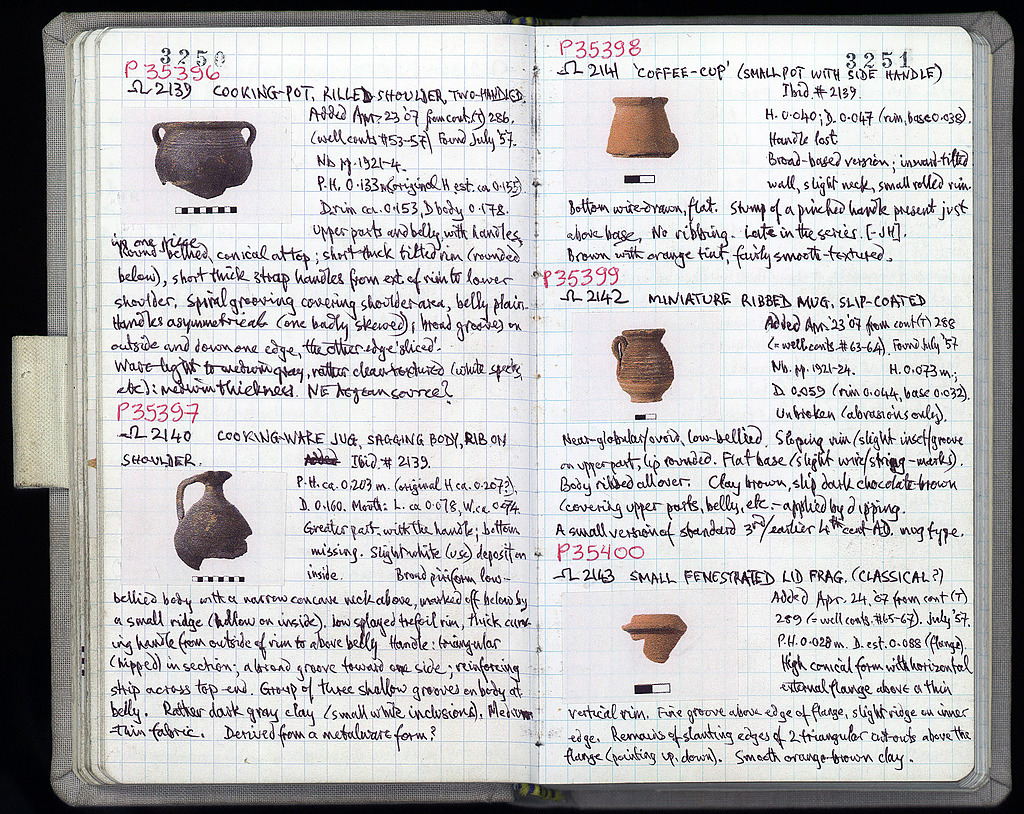 3250
P35396
Ω 2139 COOKING-POT, RILLED SHOULDER, TWO-HANDLED.
Added Apr. 23 '07 from cont. (T) 286.
(well conts #53-57) Found July '57.
Nb pg. 1921-4.
P.H. 0.133m (original H est. ca. 0.155)
D.rim ca. 0.153, D body 0.178.
Upper parts and belly with handles,
in one piece.
Round bellied, conical at top; short thick tilted rim (rounded
below), short thick strap handles from ext of rim to lower
shoulder. Spiral grooving covering shoulder area, belly plain.
Handles asymmetrical (one badly skewed); broad grooves on
outside and down one edge, the other edge 'sliced'.
Ware light to medium gray, rather clean textured (white specks,
etc): medium thickness. NE Aegean source?
P35397
Ω 2140 COOKING-WARE JUG, SAGGING BODY, RIB ON
SHOULDER.
Added Ibid. # 2139.
P.H. ca. 0.203 m. (original H. ca. 0.207?).
D. 0.160. Mouth: L. ca 0.078, W. ca. 0.074.
Greater part with the handle; bottom
missing. Slight white (use) deposit on
inside. Broad piriform low-
bellied body with a narrow concave neck above, marked off below by
a small ridge (hollow on inside), low splayed trefoil rim, thick curv-
ing handle from outside of rim to above belly Handle: triangular
(nipped) in section; a broad groove toward one side; reinforcing
strip across top end. Group of three shallow grooves on body at
belly. Rather dark gray clay (small white inclusions). Medium
thin fabric. Derived from a metalware form?
3251
P35398
Ω 2141 'COFFEE-CUP' (SMALL POT WITH SIDE HANDLE)
Ibid. # 2139.
H. 0.040; D. 0.047 (rim, base 0.038).
Handle lost
Broad-based version; inward-tilted
wall, slight neck, small rolled rim.
Bottom wire-drawn, flat. Stump of a pinched handle present just
above base. No ribbing. Late in the series. [-JH].
Brown with orange tint, fairly smooth-textured.
P35399
Ω 2142 MINIATURE RIBBED MUG, SLIP-COATED
Added Apr. 23 '07 from cont (T) 288
(= well conts. #63-64). Found July '57
Nb. pg. 1921-24. H. 0.073 m.;
D. 0.059 (rim 0.044, base 0.032).
Unbroken (abrasions only).
Near-globular/ovoid, low-bellied. Sloping rim (slight inset/groove
on upper part, lip rounded. Flat base (slight wire/string-marks).
Body ribbed all over. Clay brown, slip dark chocolate-brown
(covering upper parts, belly, etc. - applied by dipping.
A small version of standard 3rd/earlier 4th cent AD. mug type.
P35400
Ω 2143 SMALL FENESTRATED LID FRAG. (CLASSICAL?)
Added Apr. 24 '07 from cont (T)
289 (= well conts. #65-67). July '57.
P.H. 0.028 m. D. est. 0.088 (flange).
High conical form with horizontal
external flange above a thin
vertical rim. Fine groove above edge of flange, slight ridge on inner
edge. Remains of slanting edges of 2 triangular cut-outs above the
flange (pointing up, down). Smooth orange-brown clay.